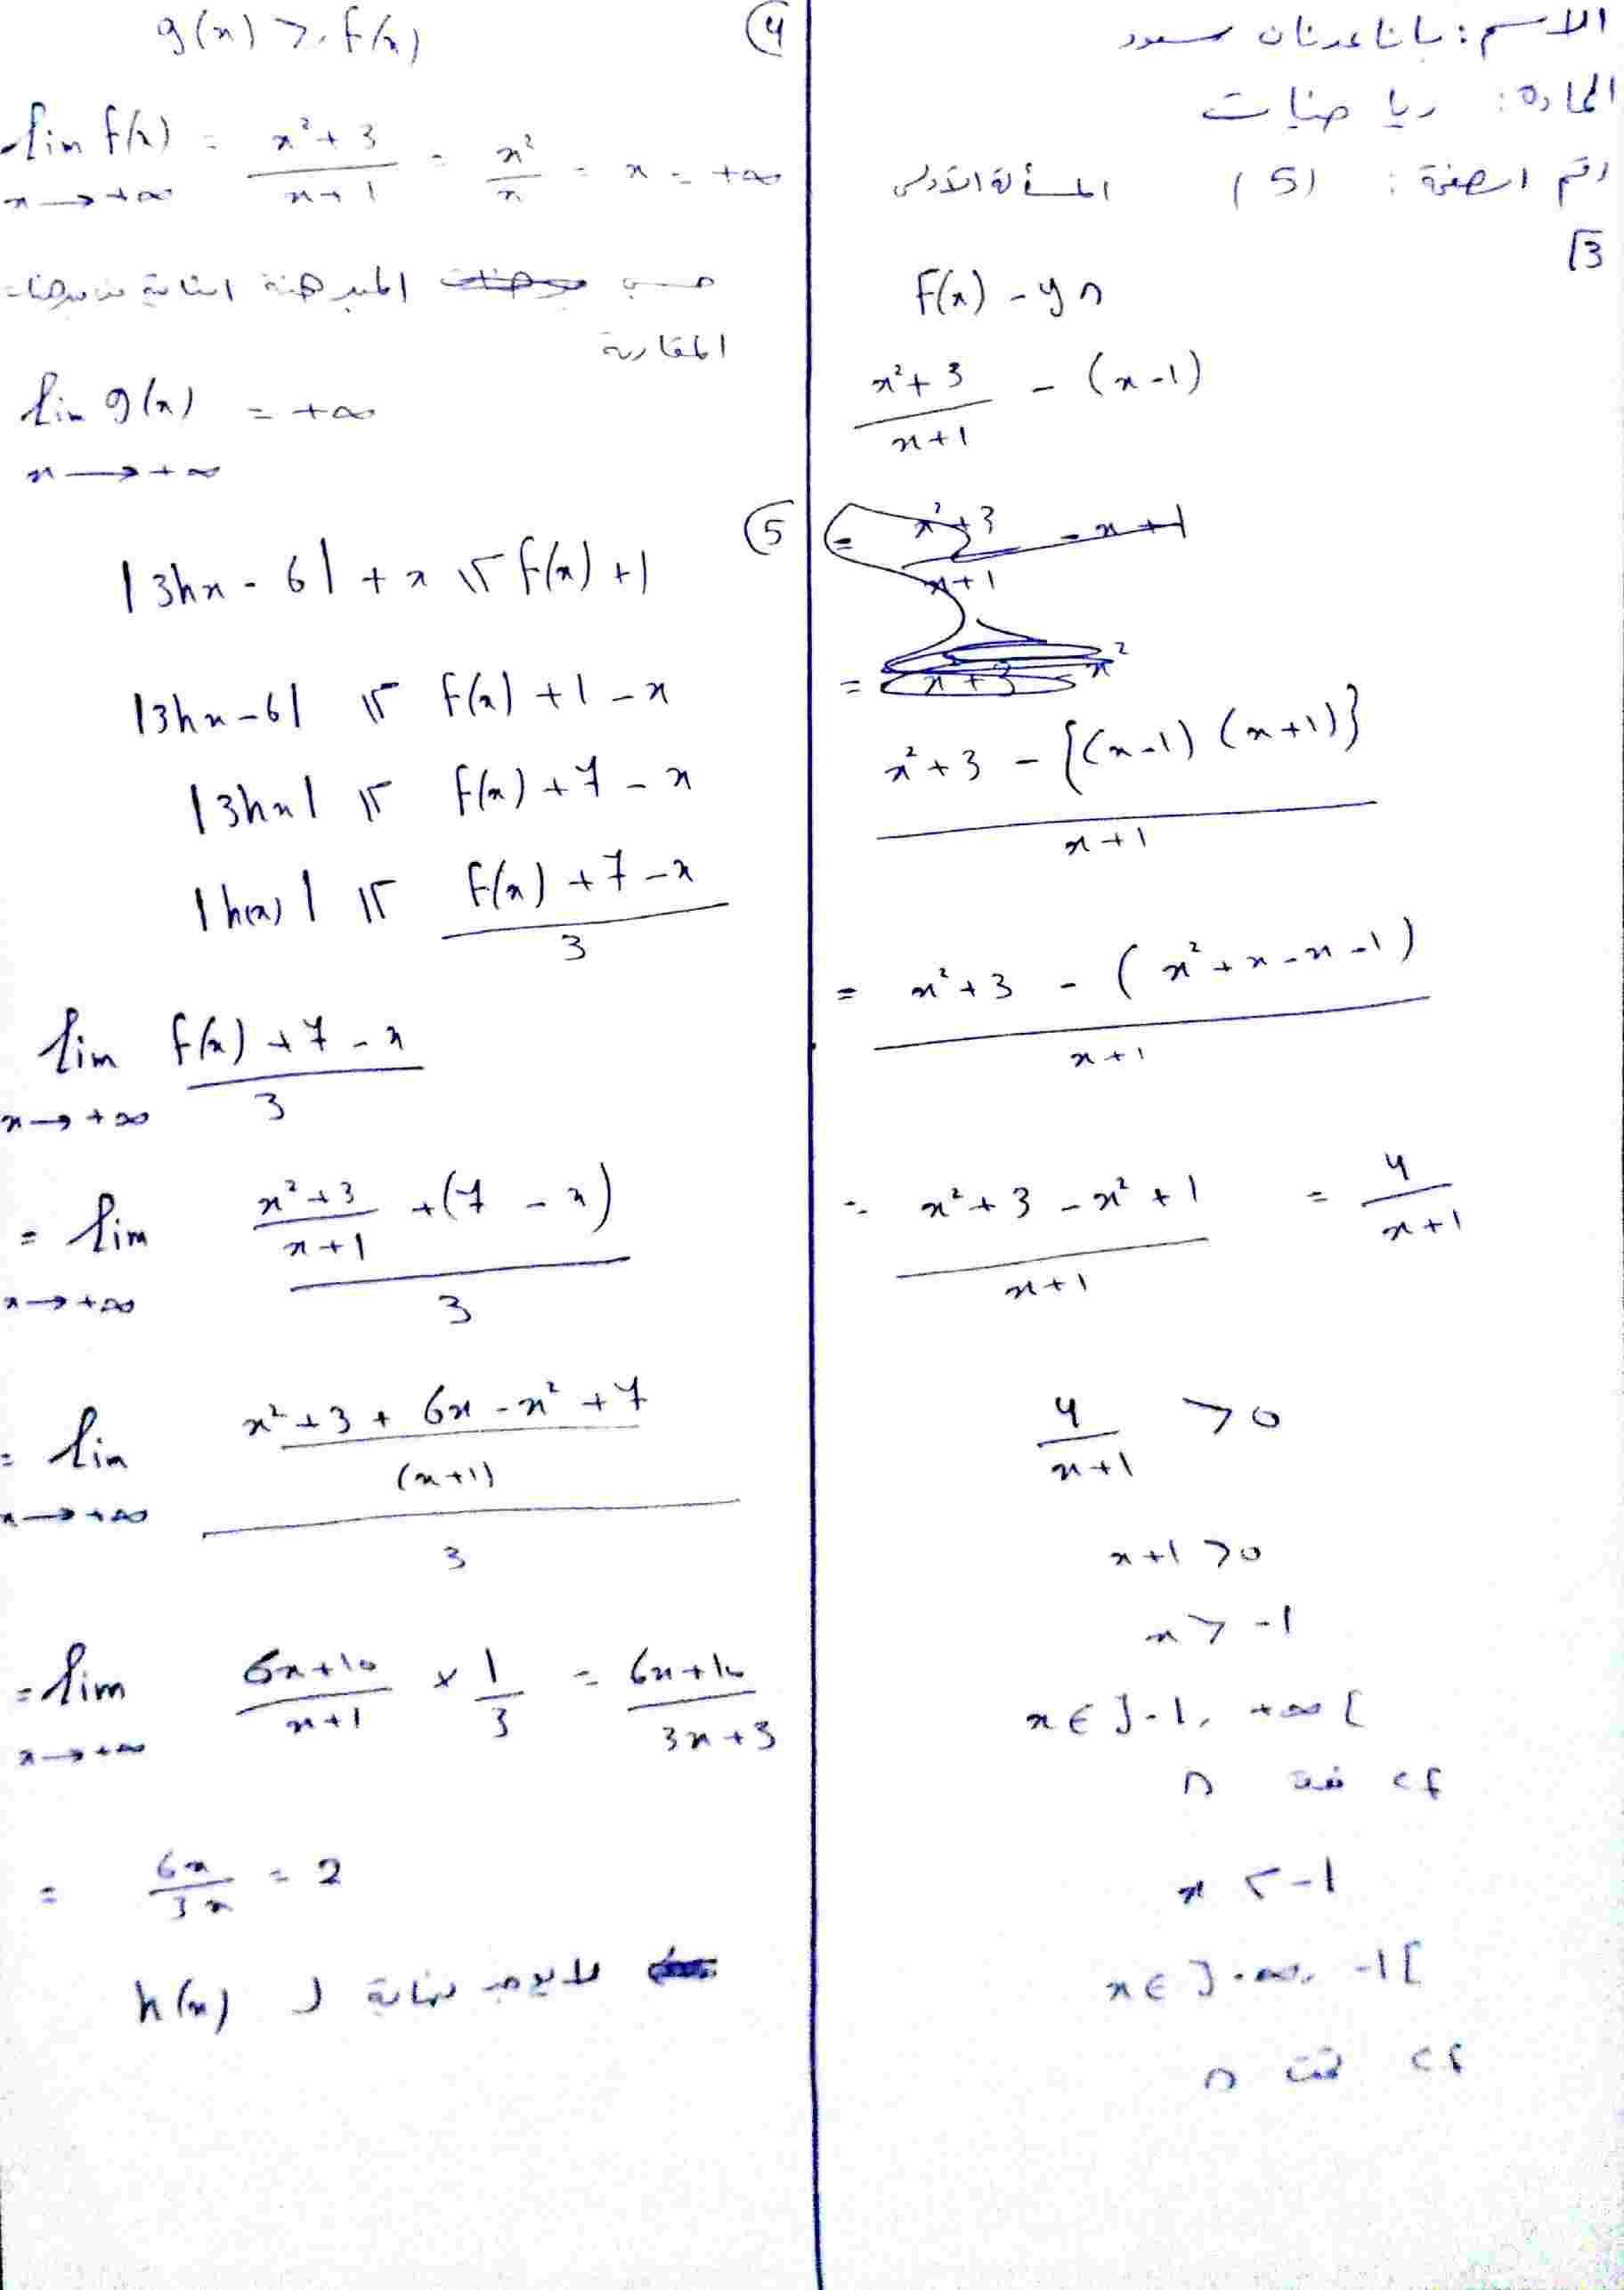 الاسم: بانا عدنان سعود
المادة: رياضيات
رقم الصفحة: (5) المسألة الأولى
3
f(x) - yΔ
x²+3/x+1 - (x-1)
= x²+3/x+1 - x+1
=
x²+3 - {(x-1) (x+1)}/x+1
= x²+3 - (x²+x-x-1)/x+1
= x²+3-x²+1/x+1 = 4/x+1
4/x+1 >0
x+1 >0
x > -1
x ∈ ]-1, +∞[
cf فوق Δ
x < -1
x ∈ ]-∞, -1[
cf تحت Δ
④ g(x) ≥ f(x)
lim f(x) = x²+3/x+1 = x²/x = x = +∞
x → +∞
حسب المبرهنة الثانية من مبرهنات
المقاربة
lim g(x) = +∞
x → +∞
⑤ |3hx - 6| + x ≤ f(x) +1
|3hx-6| ≤ f(x) +1 -x
|3hx| ≤ f(x) +7 -x
|h(x)| ≤ f(x) +7 -x/3
lim f(x) +7 -x/3
x → +∞
= lim x²+3/x+1 +(7 - x)/3
x → +∞
= lim x²+3 + 6x - x² +7/(x+1)/3
x → +∞
= lim 6x+10/x+1 × 1/3 = 6x+10/3x+3
x → +∞
= 6x/3x = 2
لا يوجد نهاية ل h(x)